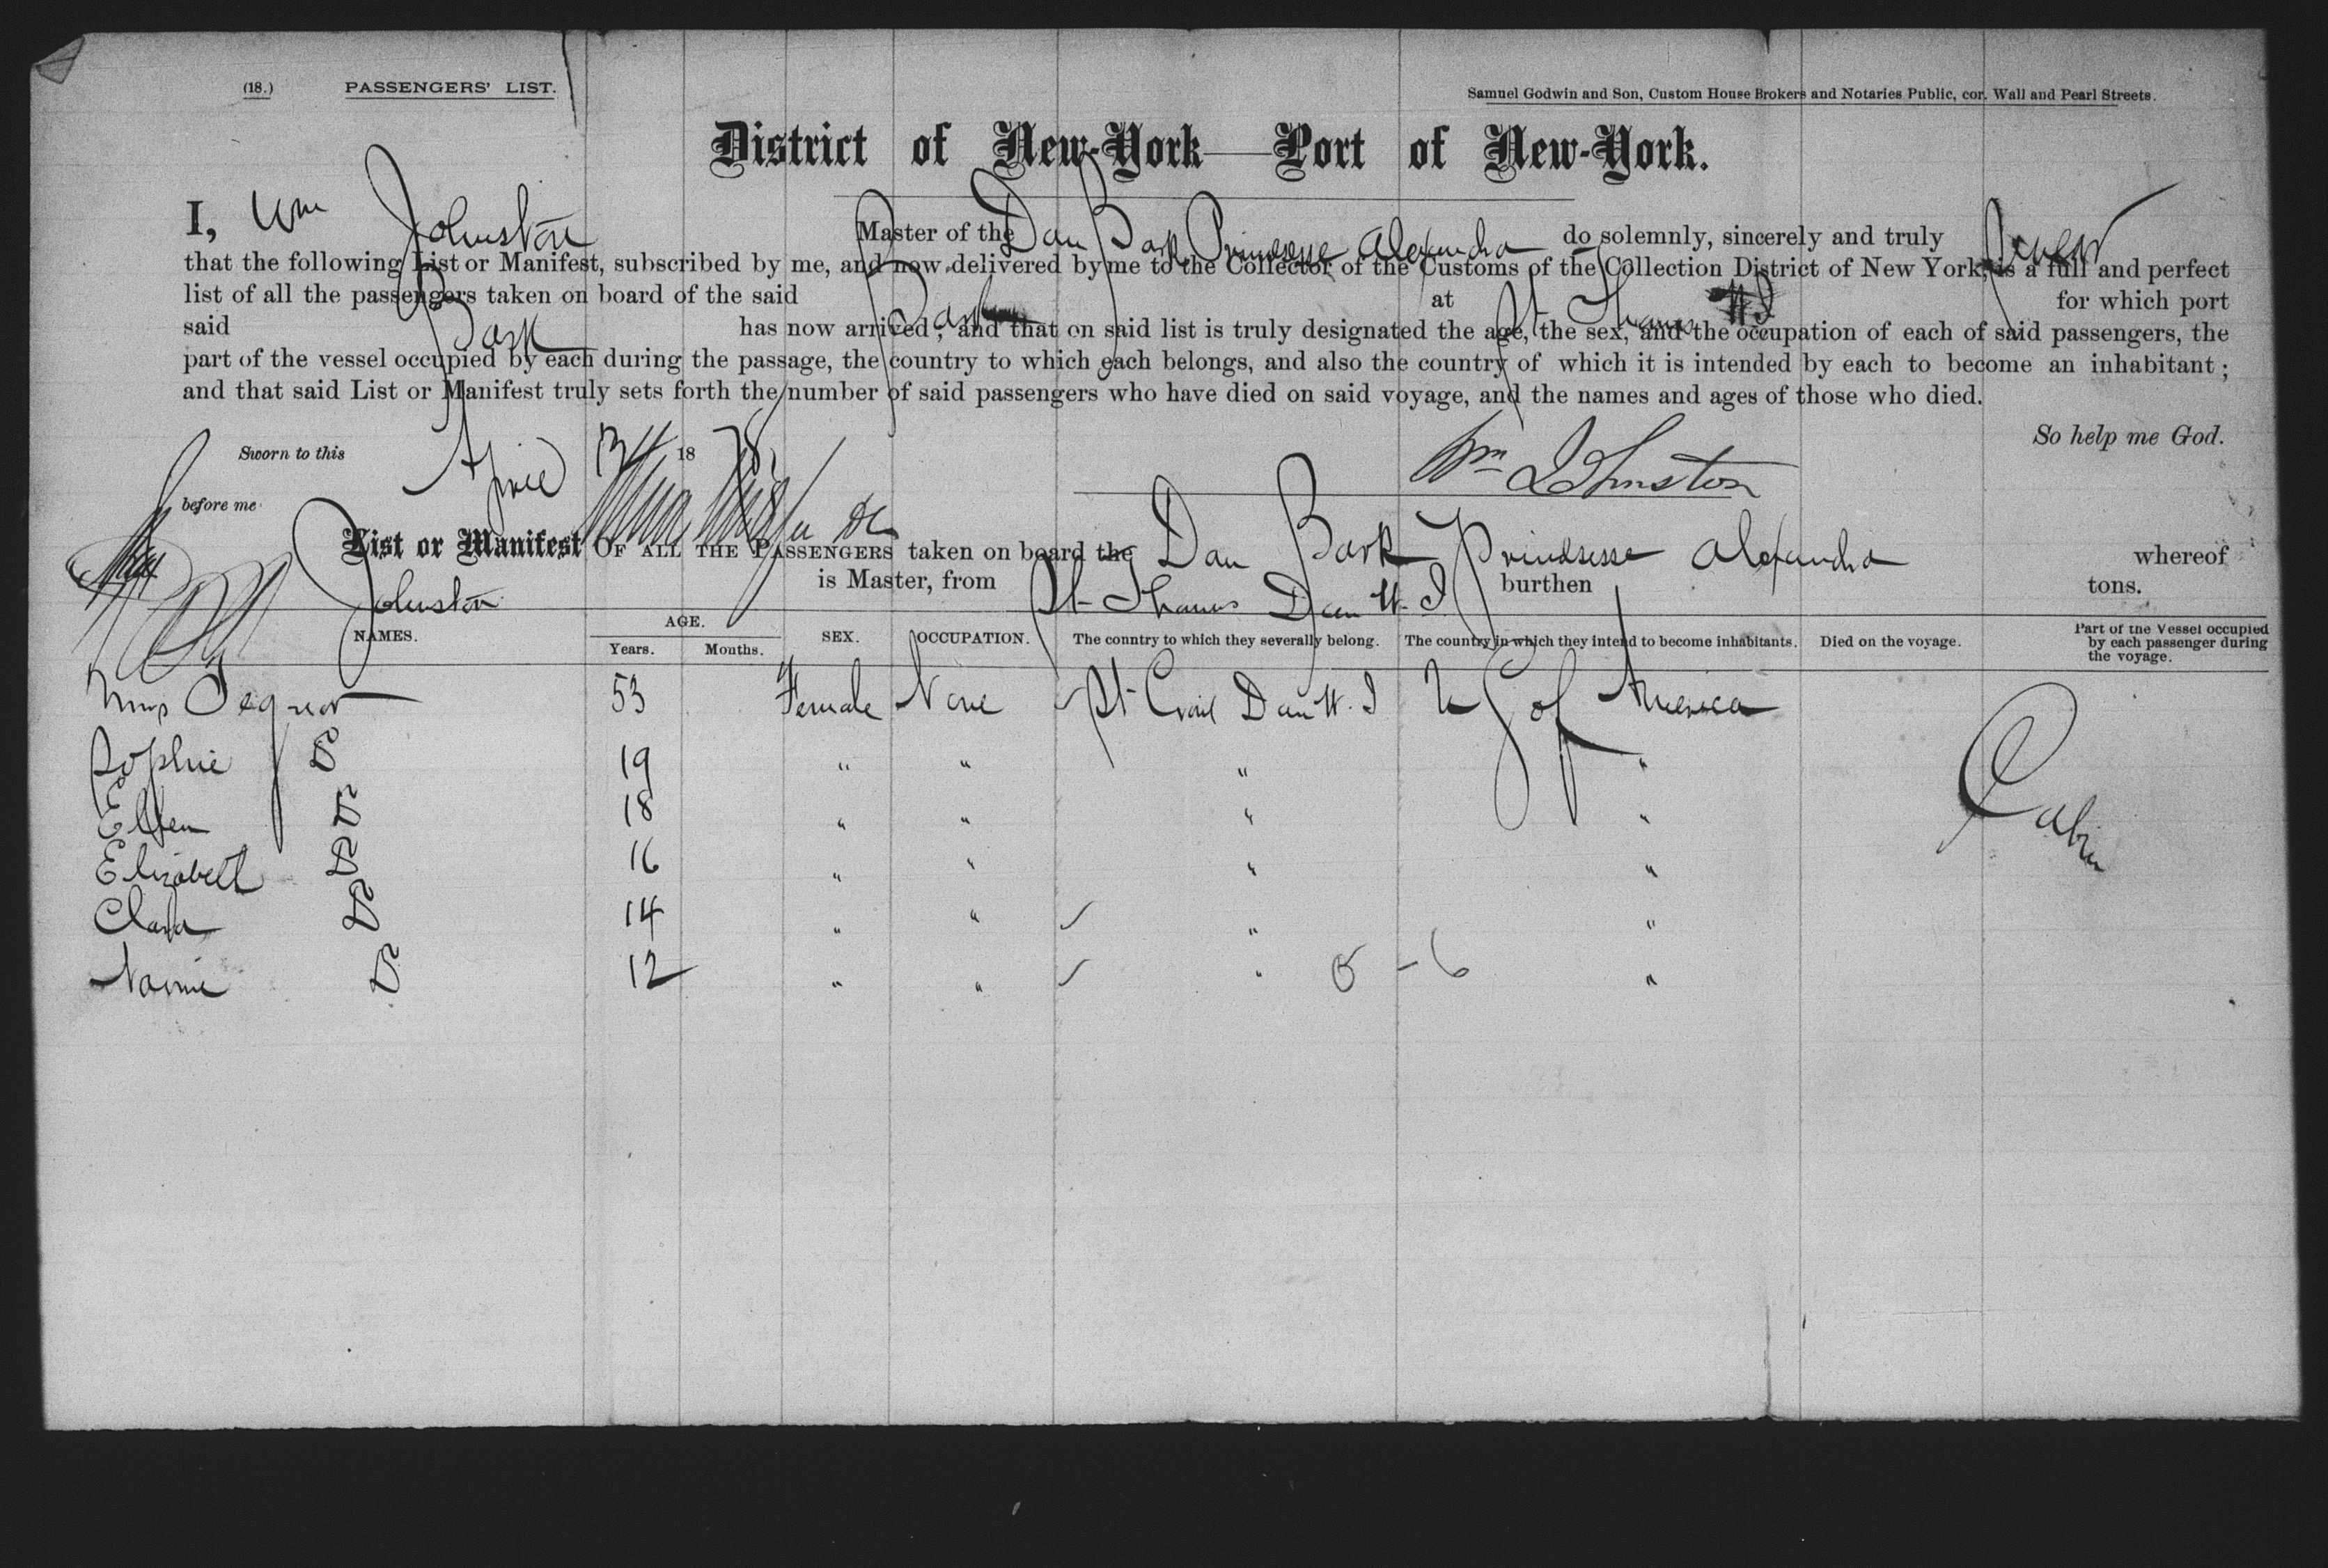 (18.) PASSENGERS' LIST.
Samuel Godwin and Son, Custom House Brokers and Notaries Public, cor. Wall and Pearl Streets.
District of New-York—Port of New-York.
I, Wm Johnston Master of the Dan Bark Prindsesse Alexandra do solemnly, sincerely and truly swear
that the following List or Manifest, subscribed by me, and now delivered by me to the Collector of the Customs of the Collection District of New York, is a full and perfect
list of all the passengers taken on board of the said Bark at St Thomas W I for which port
said Bark has now arrived; and that on said list is truly designated the age, the sex, and the occupation of each of said passengers, the
part of the vessel occupied by each during the passage, the country to which each belongs, and also the country of which it is intended by each to become an inhabitant;
and that said List or Manifest truly sets forth the number of said passengers who have died on said voyage, and the names and ages of those who died.
So help me God.
Sworn to this April 13 18 78
Wm Johnston
before me
List or Manifest OF ALL THE PASSENGERS taken on board the Dan Bark Prindsesse Alexandra whereof
Johnston is Master, from St Thomas Dan W. I burthen tons.
NAMES. AGE. Years. Months. SEX. OCCUPATION. The country to which they severally belong. The country in which they intend to become inhabitants. Died on the voyage. Part of the Vessel occupied by each passenger during the voyage.
Mrs 53 Female None St Croix Dan W. I U S of America Cabin
Sophie D 19 " " " "
Ellen D 18 " " " "
Elizabeth D 16 " " " "
Clara D 14 " " " "
Naomi D 12 " " " "
- 6